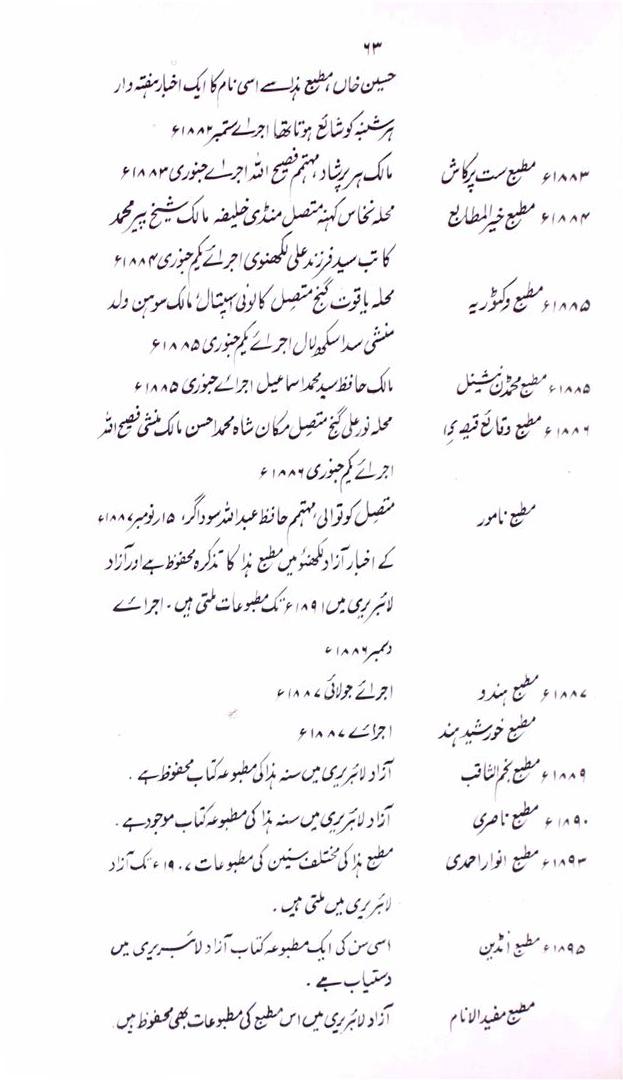 ۶۳
حسین خاں، مطبع ہذا سے اسی نام کا ایک اخبار ہفتہ وار
ہر شنبہ کو شائع ہوتا تھا اجرائے ستمبر ۱۸۸۲ء
۱۸۸۳ء مطبع ست پرکاش مالک ہر پرشاد، مہتمم فصیح اللہ اجرائے جنوری ۱۸۸۳ء
۱۸۸۴ء مطبع خیر المطابع محلہ نخاس کہنہ متصل منڈی خلیفہ مالک شیخ پیر محمد
کاتب سید فرزند علی لکھنوی اجرائے یکم جنوری ۱۸۸۴ء
۱۸۸۵ء مطبع وکٹوریہ محلہ یاقوت گنج متصل کالونی ہسپتال، مالک سوہن ولد
منشی سدا سکھ لال اجرائے یکم جنوری ۱۸۸۵ء
۱۸۸۵ء مطبع محمڈن نیشنل مالک حافظ سید محمد اسماعیل اجرائے جنوری ۱۸۸۵ء
۱۸۸۶ء مطبع وقائع قیصری محلہ نور علی گنج متصل مکان شاہ محمد احسن مالک منشی فصیح اللہ
اجرائے یکم جنوری ۱۸۸۶ء
مطبع نامور متصل کوتوالی، مہتمم حافظ عبد اللہ سوداگر، ۱۵ر نومبر ۱۸۸۷ء
کے اخبار آزاد لکھنؤ میں مطبع ہذا کا تذکرہ محفوظ ہے اور آزاد
لائبریری میں ۱۸۹۱ء تک مطبوعات ملتی ہیں۔ اجرائے
دسمبر ۱۸۸۶ء
۱۸۸۷ء مطبع ہندو اجرائے جولائی ۱۸۸۷ء
مطبع خورشید ہند اجرائے ۱۸۸۷ء
۱۸۸۹ء مطبع نجم الثاقب آزاد لائبریری میں سنہ ہذا کی مطبوعہ کتاب محفوظ ہے۔
۱۸۹۰ء مطبع ناصری آزاد لائبریری میں سنہ ہذا کی مطبوعہ کتاب موجود ہے۔
۱۸۹۳ء مطبع انوار احمدی مطبع ہذا کی مختلف سنین کی مطبوعات ۱۹۰۷ء تک آزاد
لائبریری میں ملتی ہیں۔
۱۸۹۵ء مطبع انڈین اسی سن کی ایک مطبوعہ کتاب آزاد لائبریری میں
دستیاب ہے۔
مطبع مفید الانام آزاد لائبریری میں اس مطبع کی مطبوعات بھی محفوظ ہیں